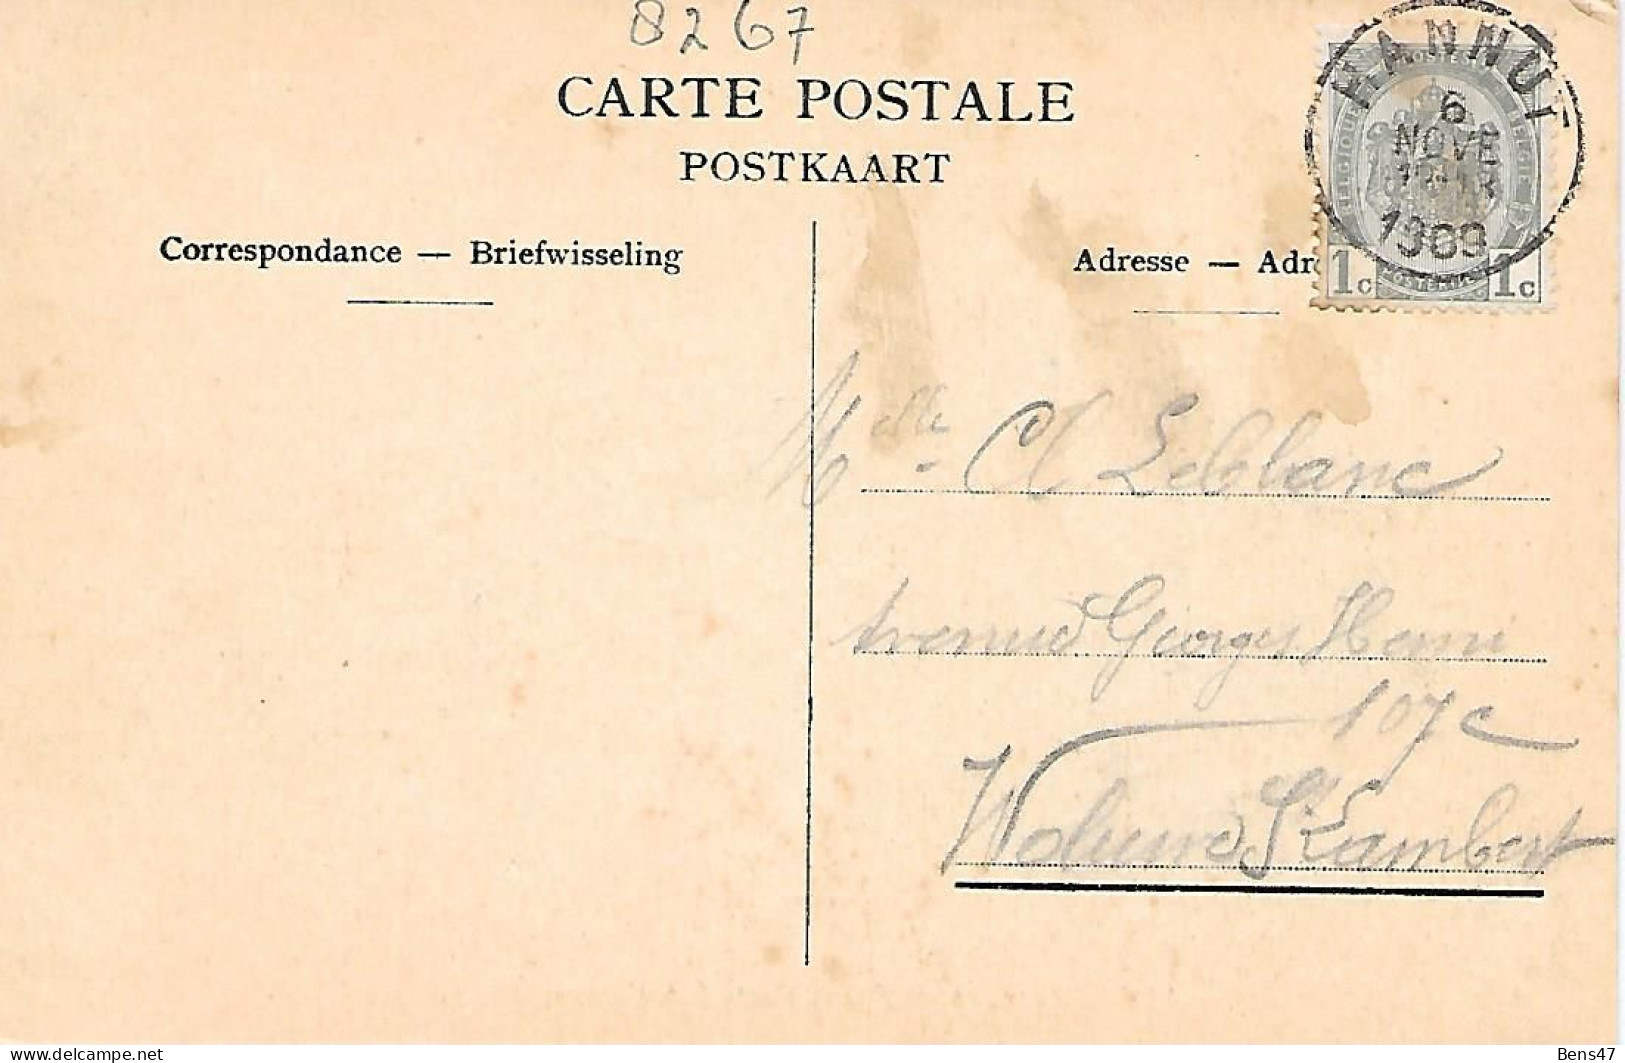 8267
CARTE POSTALE
POSTKAART
HANNUT
6
NOVE
1909
BELGIQUE
BELGIE
1c 1c
Correspondance — Briefwisseling
Adresse — Adr
Melle Cl Leblanc
Avenue Georges Henri
107c
Woluwe St Lambert
Bens47